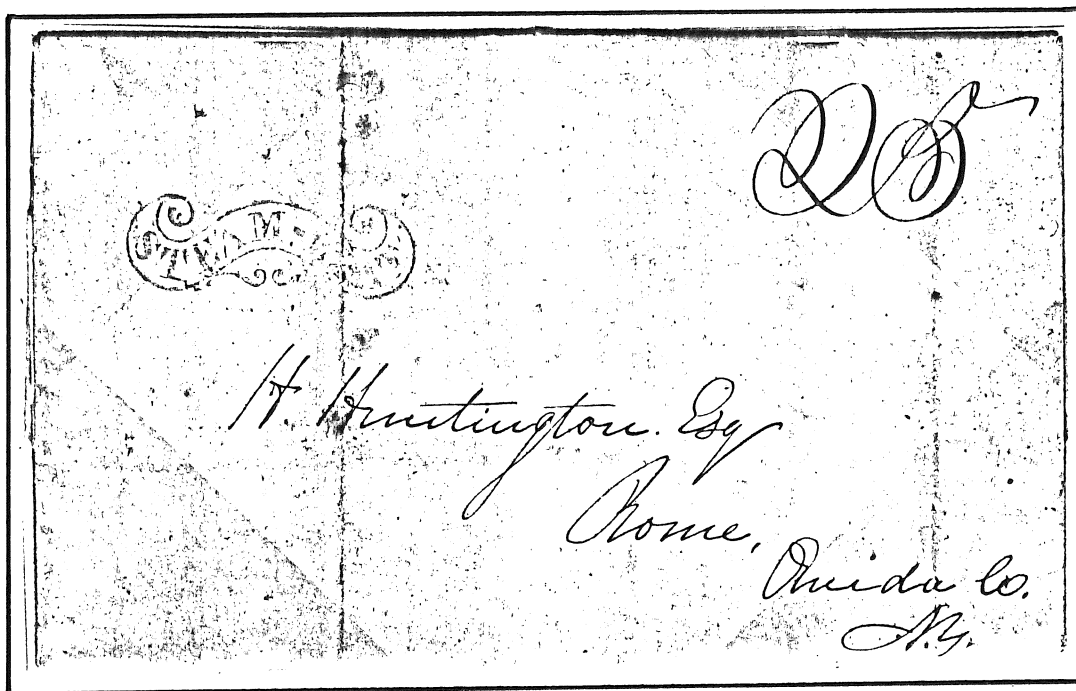 25
STEAM-
H. Huntington. Esq
Rome,
Oneida Co.
N.Y.